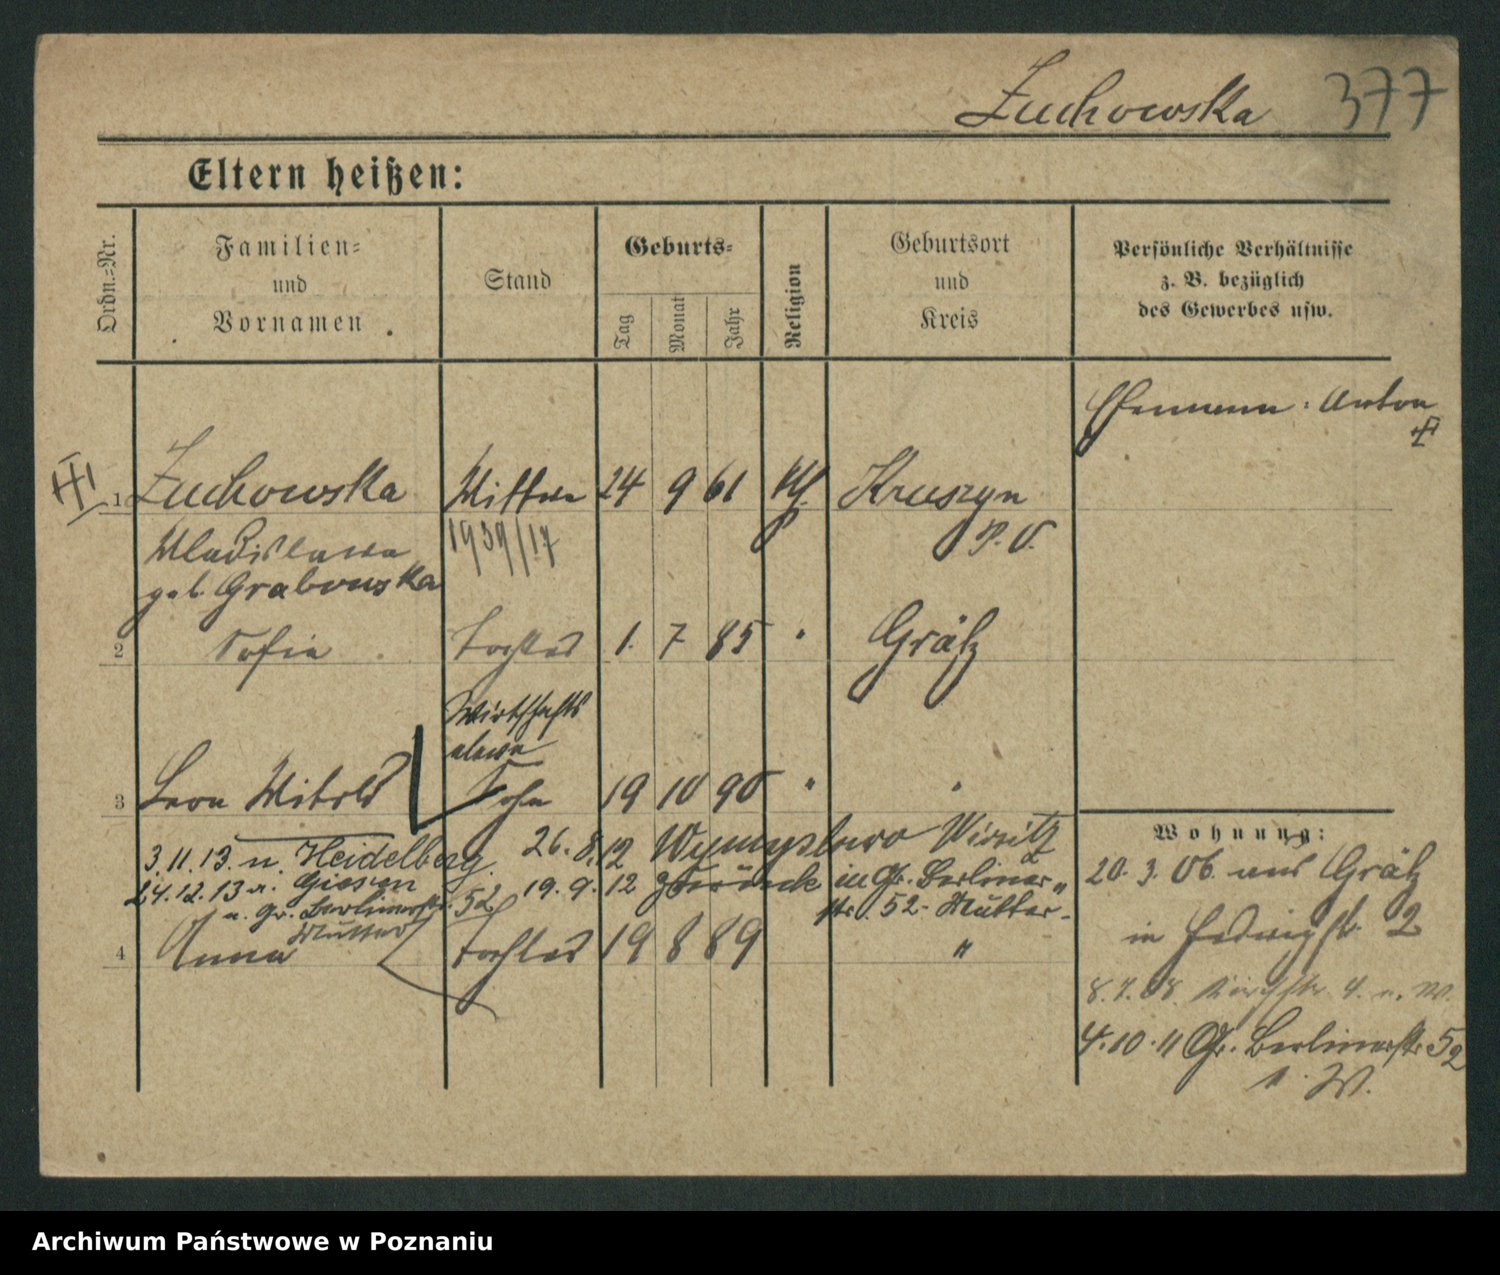 Zuchowska 377
Eltern heißen:
Ordn.-Nr.
Familien-
und
Vornamen
Stand
Geburts-
Tag
Monat
Jahr
Religion
Geburtsort
und
Kreis
Persönliche Verhältnisse
z. B. bezüglich
des Gewerbes usw.
Ehemann: Anton
1 Zuchowska Wittwe 24 9 61 kth. Kruszyn
Wladislawa 1939/17
geb. Grabowska
2 Sofia Tochter 1. 7 85 " Grätz
Wirtschafts
eleve
3 Leon Witold Sohn 19 10 90 " "
26.8.12 Wymyslowo Wirsitz
3.11.13. n. Heidelberg.
19.9.12 zurück in Gr. Berliner-
24.12.13 a. Giesen
str. 52- Mutter-
n. Gr. Berlinerstr. 52
Mutter
4 Anna Tochter 19 8 89 "
Wohnung:
20.3.06. aus Grätz
in Hedwigstr. 2
8.7.08. 4. n. W.
4.10.11 Gr. Berlinerstr 52
n. W.
Archiwum Państwowe w Poznaniu